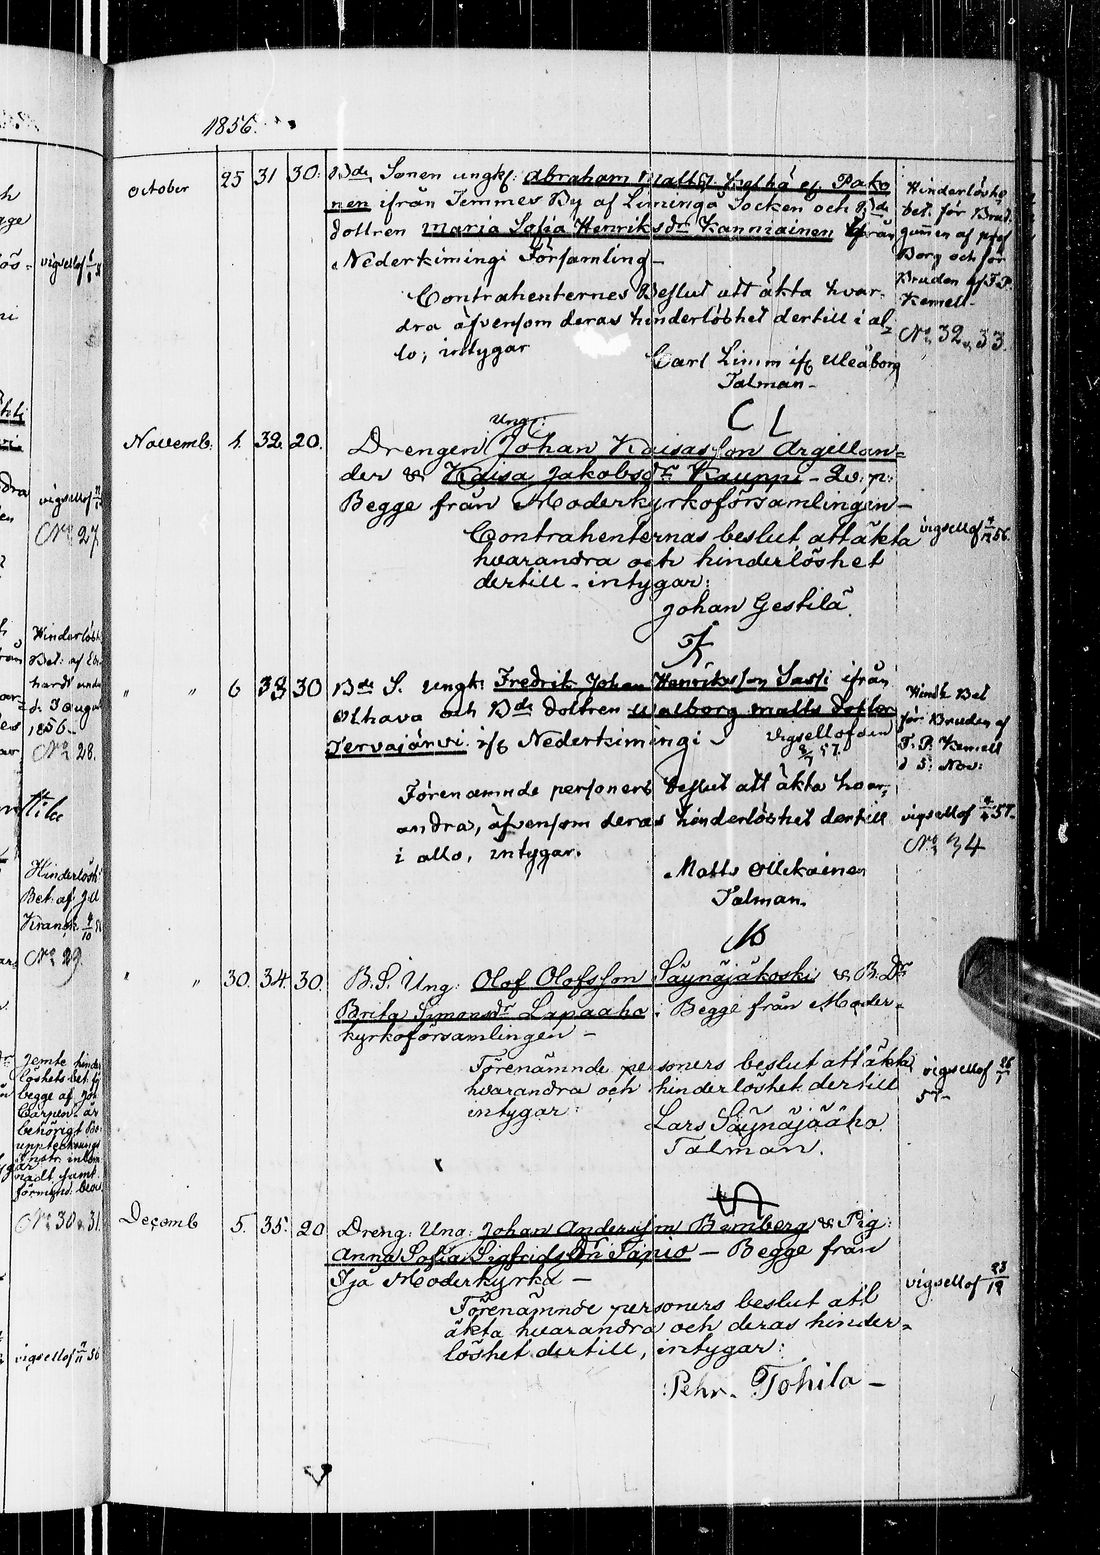 1856.
October 25 31 30. Bde Sonen ungk: Abraham Matts: Keltzä ef. Pako
nen ifrån Temmes By af Limingå Socken och Bde
dottren Maria Sofia Henriksdr Kanniainen ifrån
Nederkimingi Församling –
Contrahenternes Beslut att äkta hvar-
dra äfvensom deras hinderlöshet dertill i al-
lo; intygar
Carl Limm ifr Uleåborg
Talman –
Hinderlöshs
bet. för Brud
gumen af prof
Borg och för
Bruden af T. P.
Kemell –
No 32, 33.
C L
Novemb: 1. 32. 20. Drengen Ung: Johan Kaisasson Argillan=
der & Kaisa Jakobsdr Kauppi –
Begge från Moderkyrkoförsamlingen –
Contrahenternas beslut att äkta
hvarandra och hinderlöshet
dertill – intygar:
Johan Gestilä.
vigsell af 56.
" " 6 33 30 Bde S. ungk: Fredrik Johan Henriksson Sassi ifrån
Olhava och Bde dottren Walborg Matts dotter
Tervajärvi ifr Nederkimingi –
vigsell af den 57.
Förenämnde personers beslut att äkta hvar-
andra, äfvensom deras hinderlöshet dertill
i allo, intygar.
Matts Ollikainen
Talman.
Hindr Bet
för Bruden af
T. P. Kemell
d 5. Nov:
vigsell af 57.
No 34
" " 30. 34. 30. B. S. Ung: Olof Olofsson Säynäjäkoski & B. Dr
Brita Simonsdr Lapaaho. Begge från Moder=
kyrkoförsamlingen –
Förenämnde personers beslut att äkta
hvarandra och hinderlöshet dertill
intygar:
Lars Säynäjääho.
Talman.
vigsell af
57 –
Decemb 5. 35. 20 Dreng: Ung: Johan Andersson Bamberg & Pig:
Anna Sofia Sigfridsdri Tapio – Begge från
Ijå Moderkyrka –
Förenämnde personers beslut att
äkta hvarandra och deras hinder=
löshet dertill, intygar:
Pehr. Tohila –
vigsell af 23/12
vigsell af
vigsell af
No 27.
Hinderlösh:
1856 –
No 28.
Hinderlösh:
Bet: af
No 29.
Jemte hinder
löshets bet. för
begge af
behörigt
No 30, 31.
vigsell af 56